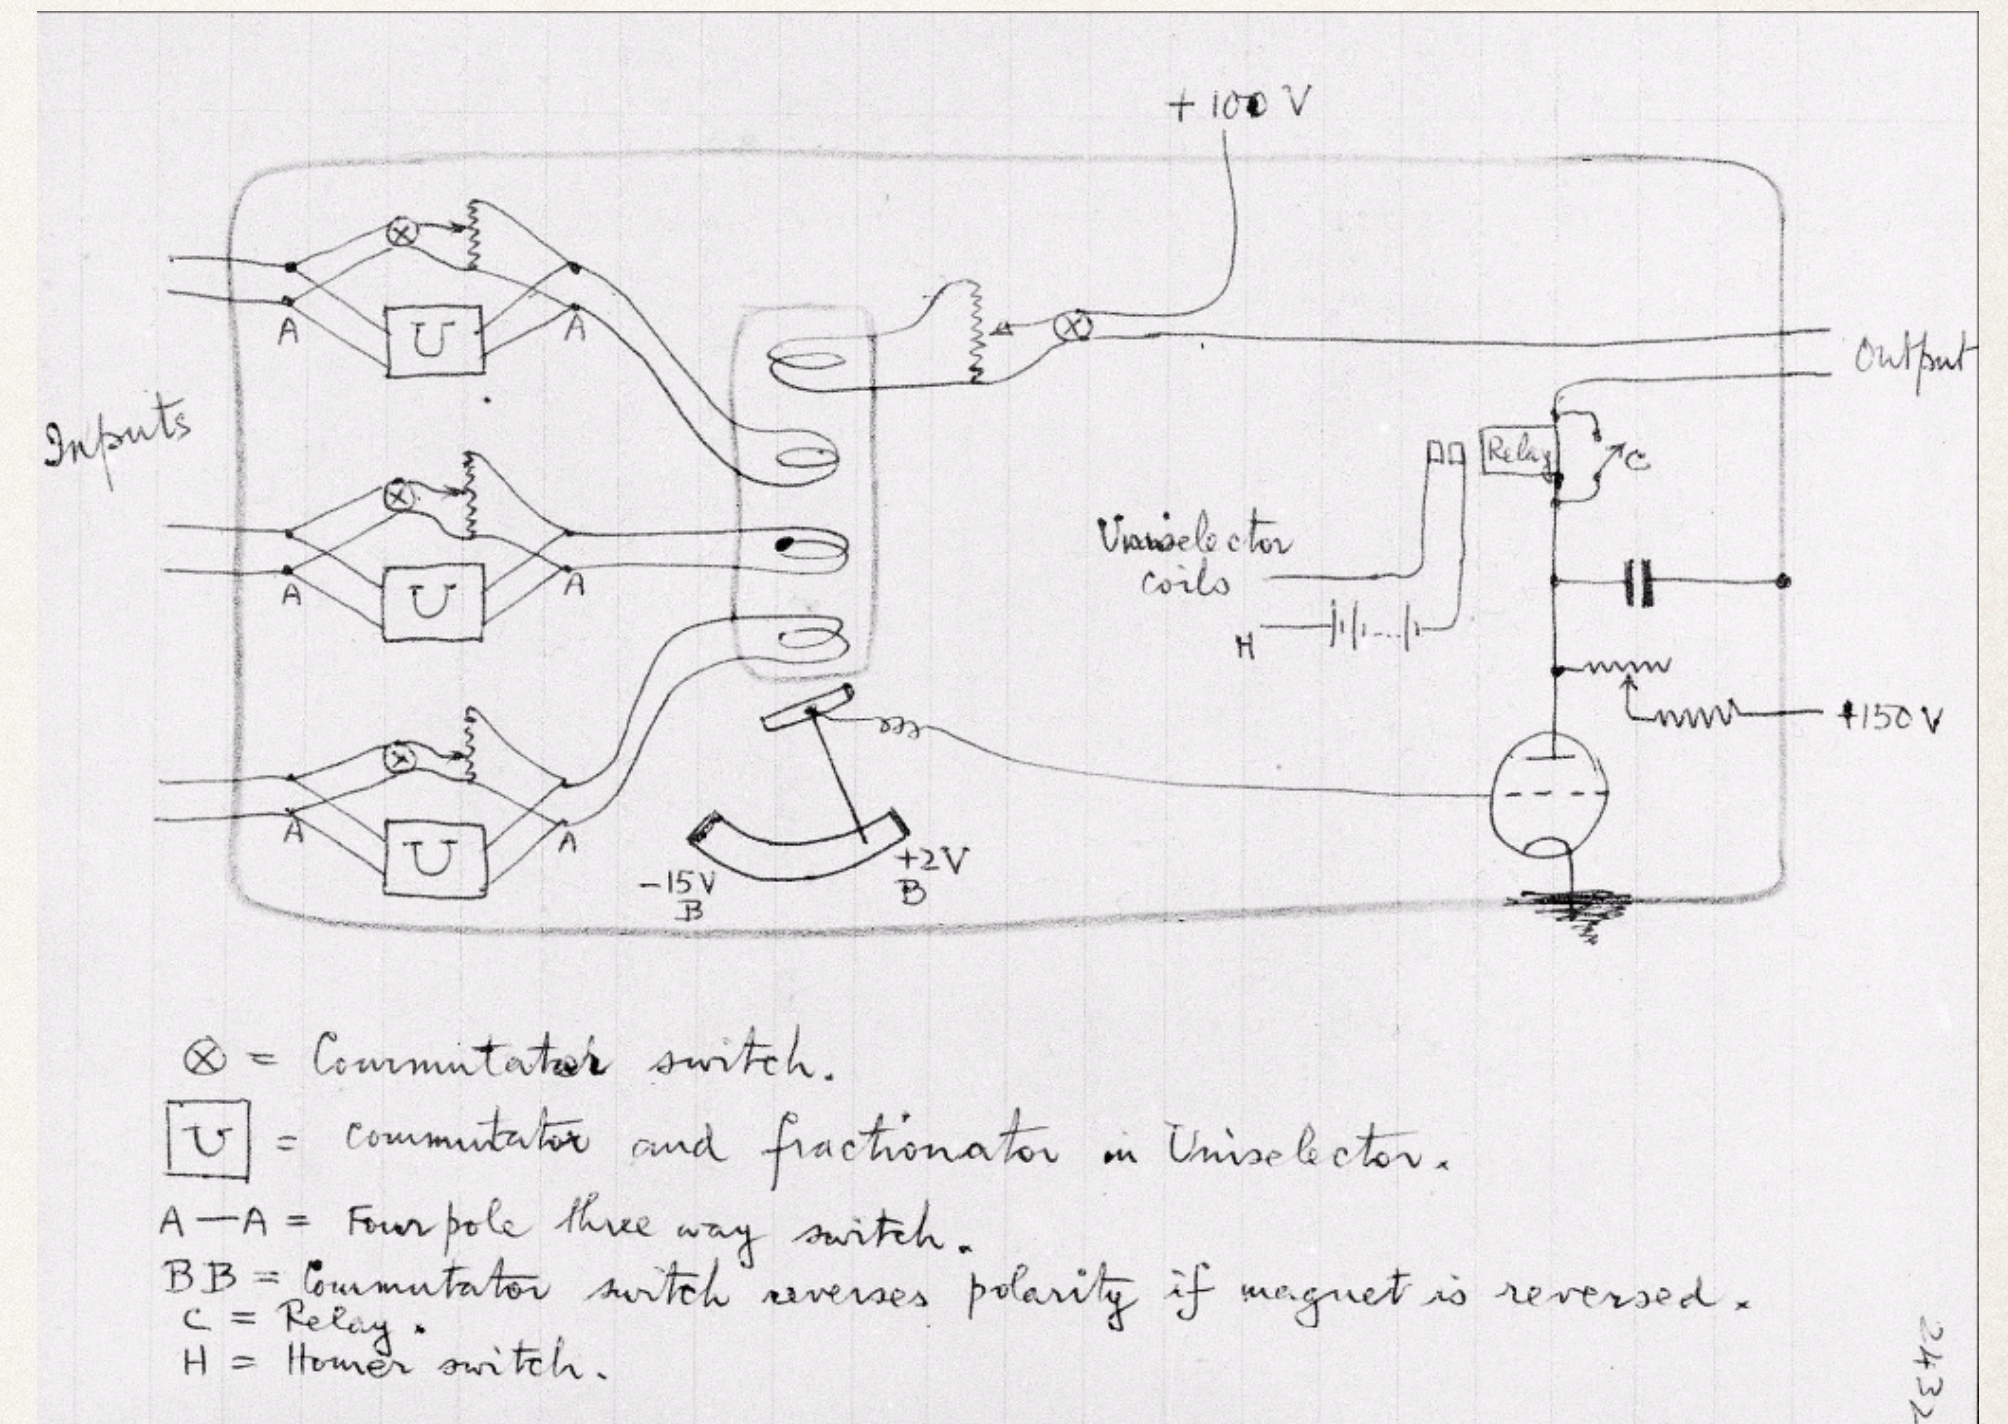 + 100 V
A
U
A
Inputs
Output
Relay
C
A
U
A
Uniselector
coils
H
+150 V
A
U
A
-15V
B
+2V
B
⊗ = Commutator switch.
U = commutator and fractionator in Uniselector.
A—A = Four pole three way switch.
BB = Commutator switch reverses polarity if magnet is reversed.
C = Relay.
H = Homer switch.
2432